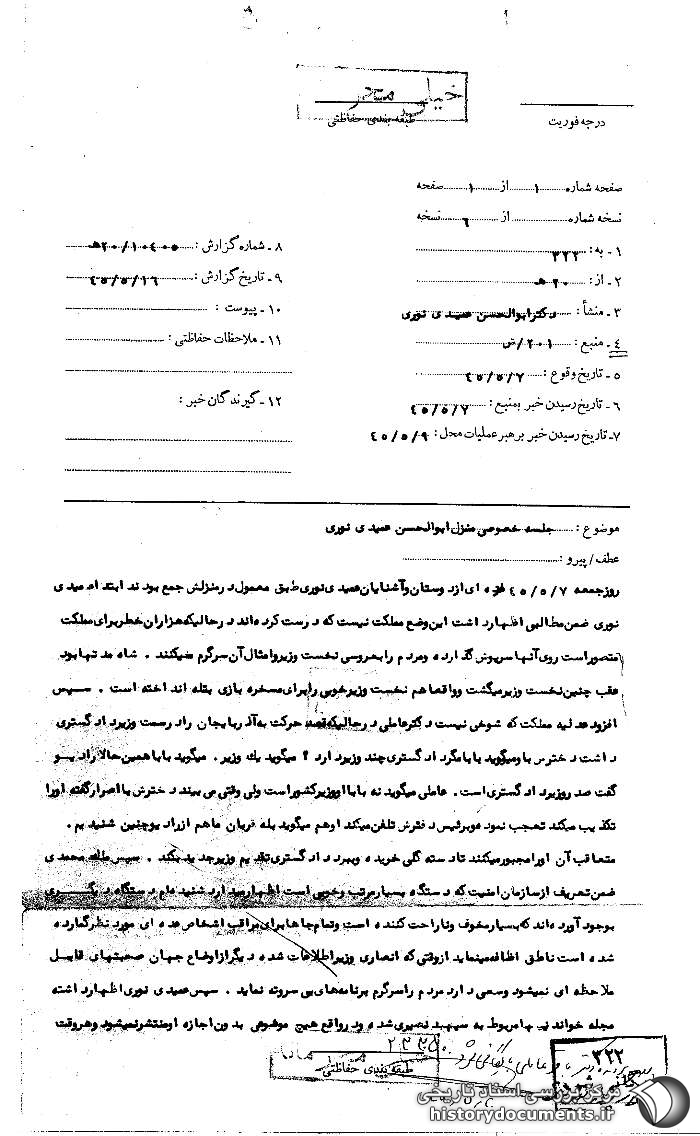 خیلی محرمانه
طبقه بندی حفاظتی
درجه فوریت
صفحه شماره ۱ از ۱ صفحه
نسخه شماره از ۶ نسخه
۱ـ به: ۳۲۲
۲ـ از: ۲۰ هـ
۳ـ منشأ: دکتر ابوالحسن عمیدی نوری
۴ـ منبع: ۲۰۱/ض
۵ـ تاریخ وقوع: ۴۵/۵/۷
۶ـ تاریخ رسیدن خبر بمنبع: ۴۵/۵/۷
۷ـ تاریخ رسیدن خبر برهبر عملیات محل: ۴۵/۵/۹
۸ـ شماره گزارش: ۲۰/۱۰۴۰۵هـ
۹ـ تاریخ گزارش: ۴۵/۵/۱۶
۱۰ـ پیوست:
۱۱ـ ملاحظات حفاظتی:
۱۲ـ گیرندگان خبر:
موضوع: جلسه خصوصی منزل ابوالحسن عمیدی نوری
عطف/پیرو:
روز جمعه ۴۵/۵/۷ عده ای از دوستان و آشنایان عمیدی نوری طبق معمول در منزلش جمع بودند ابتدا عمیدی
نوری ضمن مطالبی اظهار داشت این وضع مملکت نیست که درست کرده اند در حالیکه هزاران خطر برای مملکت
متصور است روی آنها سرپوش گذارده و مردم را بعروسی نخست وزیر و امثال آن سرگرم میکنند . شاه مدتها بود
عقب چنین نخست وزیر میگشت و واقعا هم نخست وزیر خوبی را برای مسخره بازی بتله انداخته است . سپس
افزود عدلیه مملکت که شوخی نیست دکتر عاملی در حالیکه قصد حرکت به آذربایجان را در سمت وزیر دادگستری
داشت دخترش باو میگوید بابا مگر دادگستری چند وزیر دارد ؟ میگوید یك وزیر . میگوید بابا همین حالا رادیو
گفت صدر وزیر دادگستری است . عاملی میگوید نه بابا او وزیر کشور است ولی وقتی می بیند دخترش با اصرار گفته او را
تکذیب میکند تعجب نموده و برئیس دفترش تلفن میکند او هم میگوید بله قربان ما هم از رادیو چنین شنیدیم .
متعاقب آن او را مجبور میکنند تا دسته گلی خریده و ببرد دادگستری تقدیم وزیر جدید بکند . سپس محمدی
ضمن تعریف از سازمان امنیت که دستگاه بسیار مرتب و خوبی است اظهار میدارد شنیده ام دستگاه دیگری
بوجود آورده اند که بسیار مخوف و ناراحت کننده است و تمام جاها برای مراقب اشخاص عده ای مورد نظر گمارده
شده است ناطق اظافه مینماید از وقتی که انصاری وزیر اطلاعات شده دیگر از اوضاع جهان صحبتهای قابل
ملاحظه ای نمیشود و سعی دارد مردم را سرگرم برنامه های بی سروته نماید . سپس عمیدی نوری اظهار داشته
مجله خواندنیها مربوط به سپهبد نصیری شده و در واقع هیچ موضوعی بدون اجازه او منتشر نمیشود و هر وقت
طبقه بندی حفاظتی
۳۲۲
مرکز بررسی اسناد تاریخی
historydocuments.ir